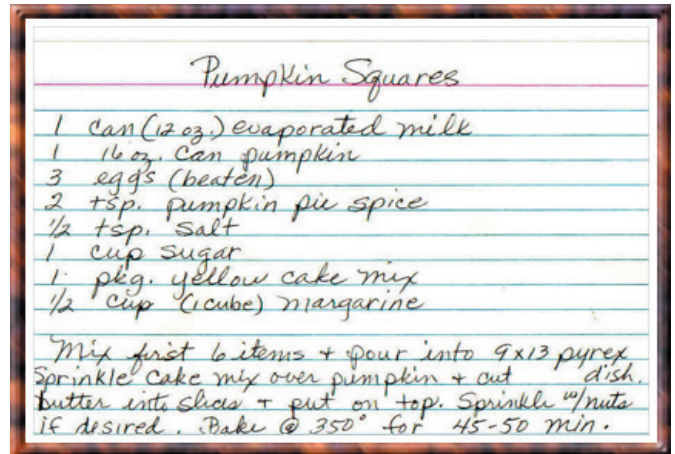 Pumpkin Squares
1 can (12 oz.) evaporated milk
1 16 oz. can pumpkin
3 eggs (beaten)
2 tsp. pumpkin pie spice
1/2 tsp. salt
1 cup sugar
1 pkg. yellow cake mix
1/2 cup (1 cube) margarine
Mix first 6 items + pour into 9x13 pyrex
Sprinkle cake mix over pumpkin + cut dish.
butter into slices + put on top. Sprinkle w/nuts
if desired. Bake @ 350° for 45-50 min.